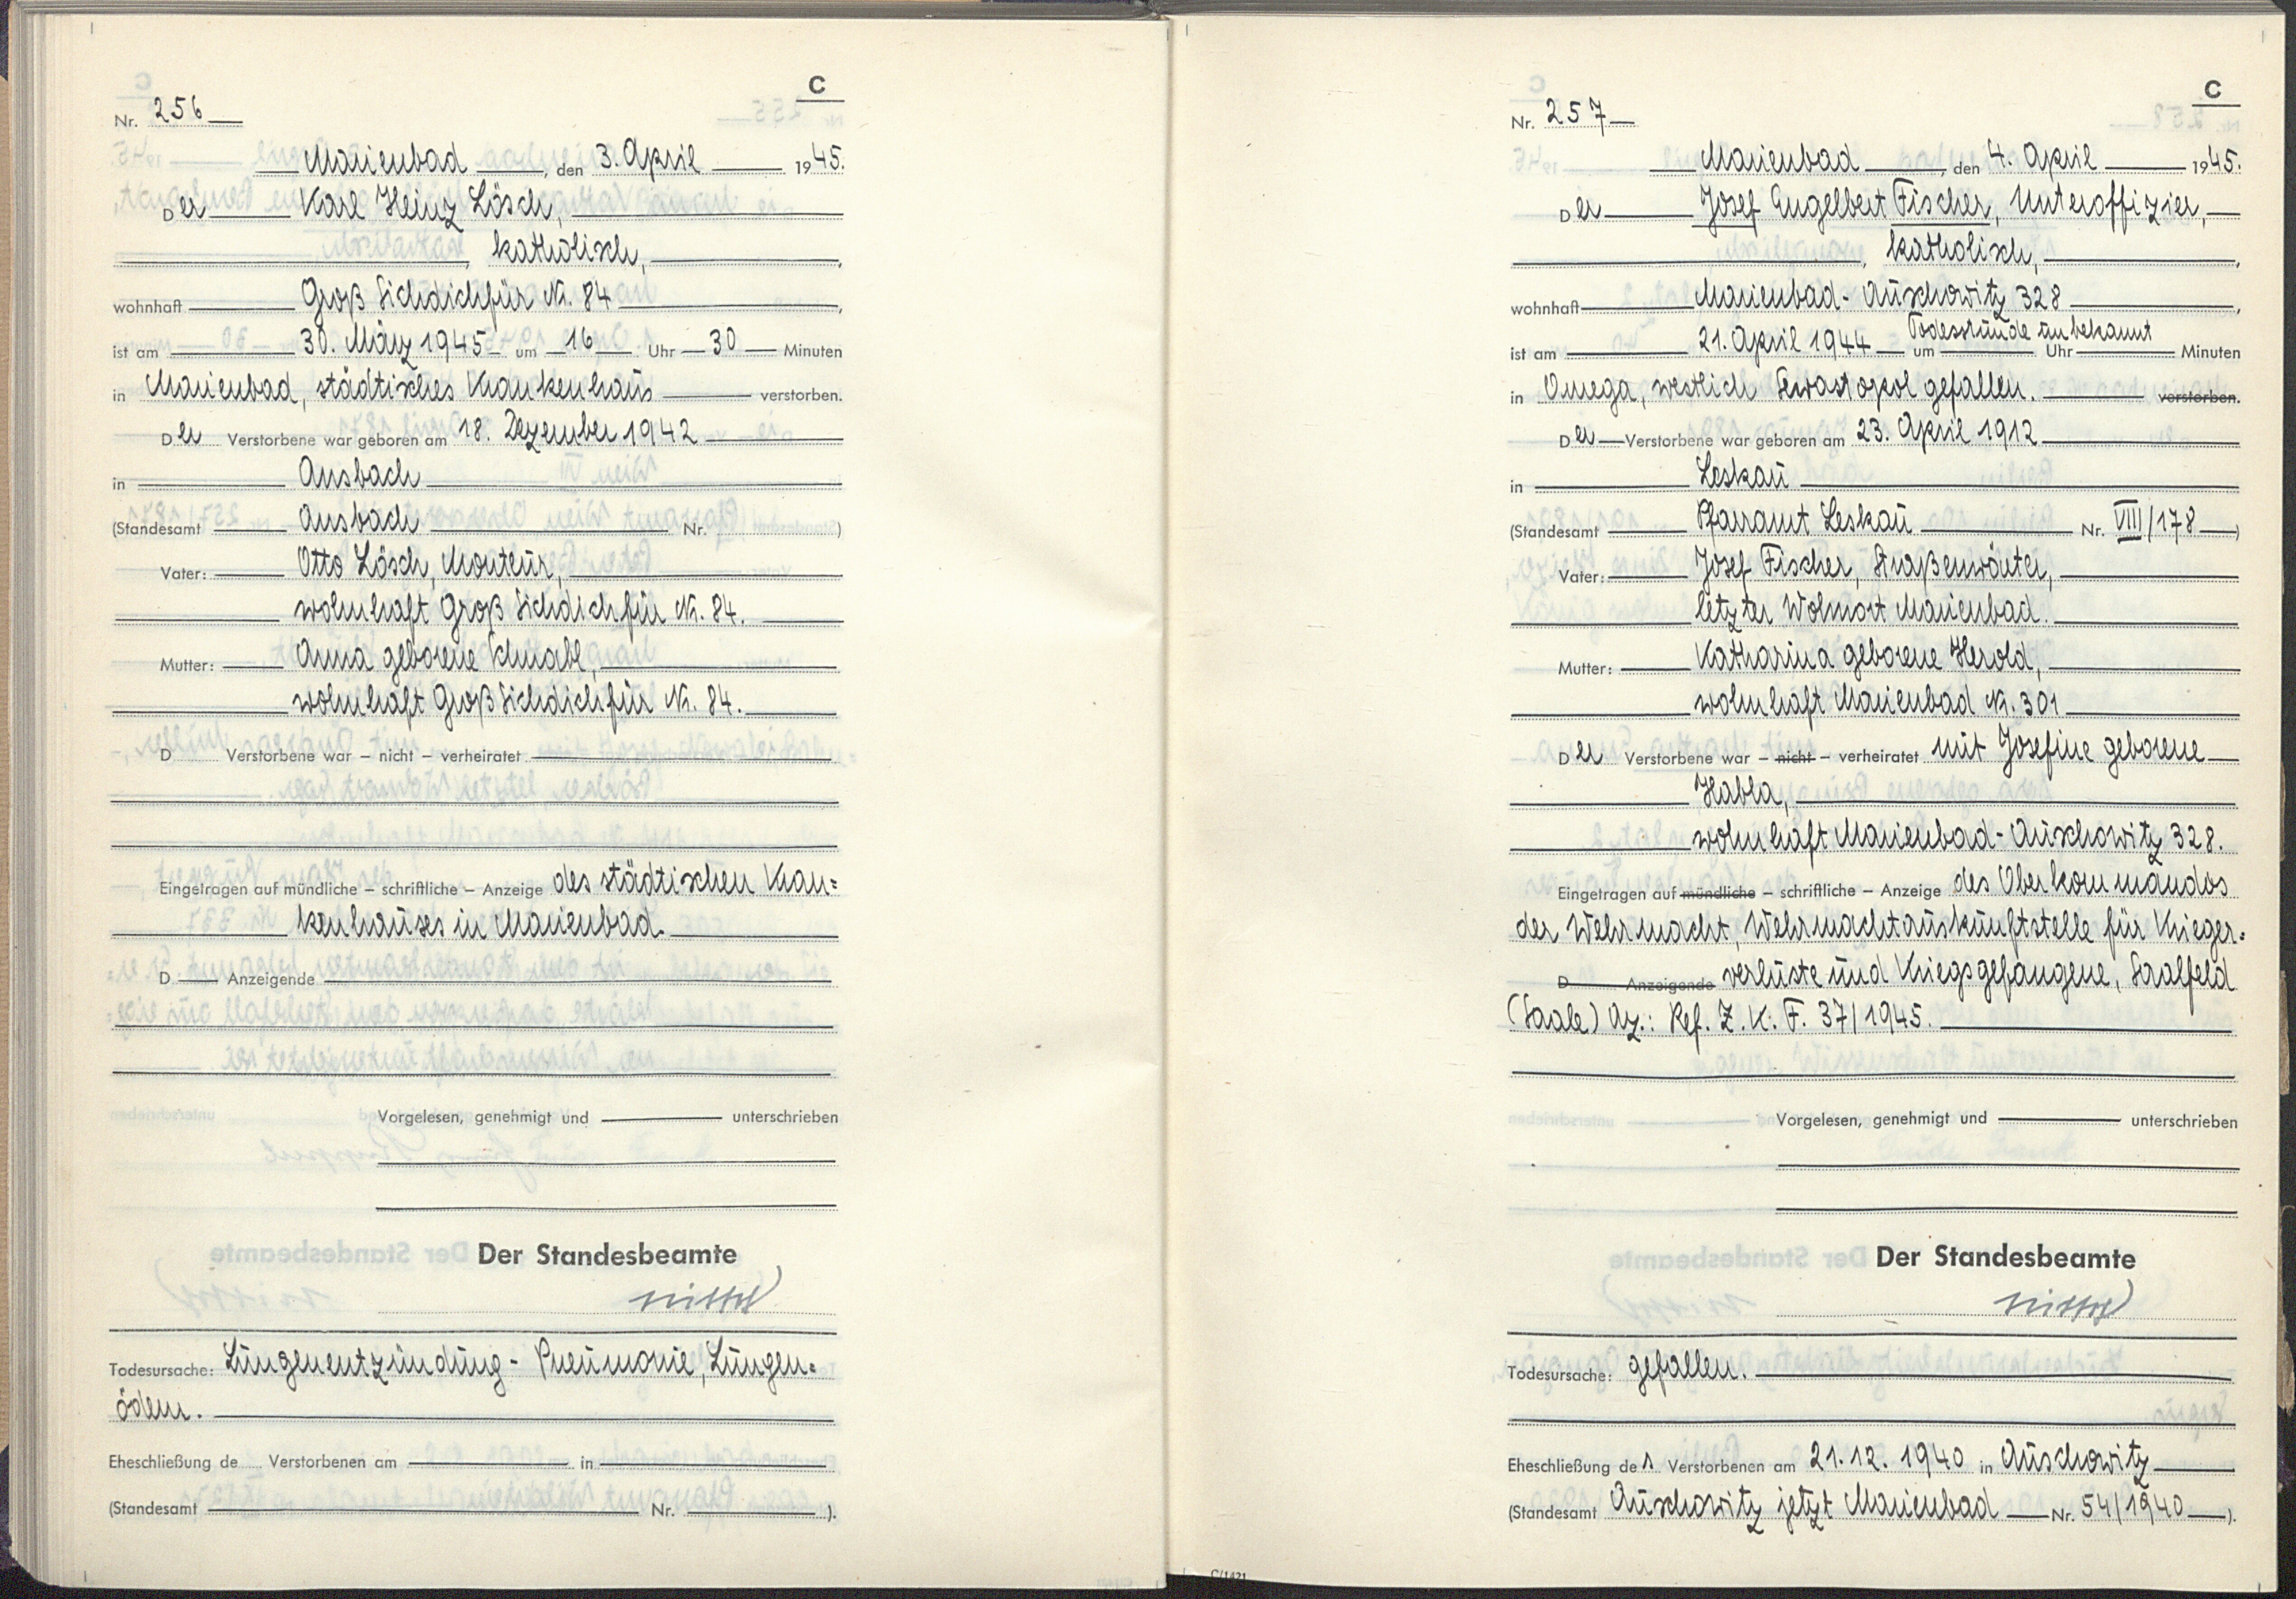 C
Nr. 256
Marienbad, den 3. April 1945.
Der Karl Heinz Lösch,
, katholisch, ,
wohnhaft Groß Sichdichfür Nr. 84 ,
ist am 30. März 1945 um 16 Uhr 30 Minuten
in Marienbad, städtisches Krankenhaus verstorben.
Der Verstorbene war geboren am 18. Dezember 1942
in Ansbach
(Standesamt Ansbach Nr. )
Vater: Otto Lösch, Monteur,
wohnhaft Groß Sichdichfür Nr. 84.
Mutter: Anna geborene Schnabl,
wohnhaft Groß Sichdichfür Nr. 84.
D Verstorbene war – nicht – verheiratet
Eingetragen auf mündliche – schriftliche – Anzeige des städtischen Kran=
kenhauses in Marienbad.
D Anzeigende
Vorgelesen, genehmigt und unterschrieben
Der Standesbeamte
Todesursache: Lungenentzündung - Pneumonie, Lungen=
ödem.
Eheschließung de Verstorbenen am in
(Standesamt Nr. ).
C
Nr. 257
Marienbad, den 4. April 1945.
Der Josef Engelbert Fischer, Unteroffizier,
, katholisch, ,
wohnhaft Marienbad-Auschowitz 328 ,
ist am 21. April 1944 um Todesstunde unbekannt Uhr Minuten
in Omega, westlich Sewastopol gefallen. verstorben.
Der Verstorbene war geboren am 23. April 1912
in Leskau
(Standesamt Pfarramt Leskau Nr. VIII/178 )
Vater: Josef Fischer, Straßenwärter,
letzter Wohnort Marienbad.
Mutter: Katharina geborene Herold,
wohnhaft Marienbad Nr. 301
Der Verstorbene war – nicht – verheiratet mit Josefine geborene
Habla,
wohnhaft Marienbad-Auschowitz 328.
Eingetragen auf mündliche – schriftliche – Anzeige des Oberkommandos
der Wehrmacht, Wehrmachtauskunftstelle für Krieger=
D Anzeigende verluste und Kriegsgefangene, Saalfeld
(Saale) Az.: Ref. Z. K. F. 37/1945.
Vorgelesen, genehmigt und unterschrieben
Der Standesbeamte
Todesursache: gefallen.
Eheschließung des Verstorbenen am 21.12.1940 in Auschowitz
(Standesamt Auschowitz jetzt Marienbad Nr. 54/1940 ).